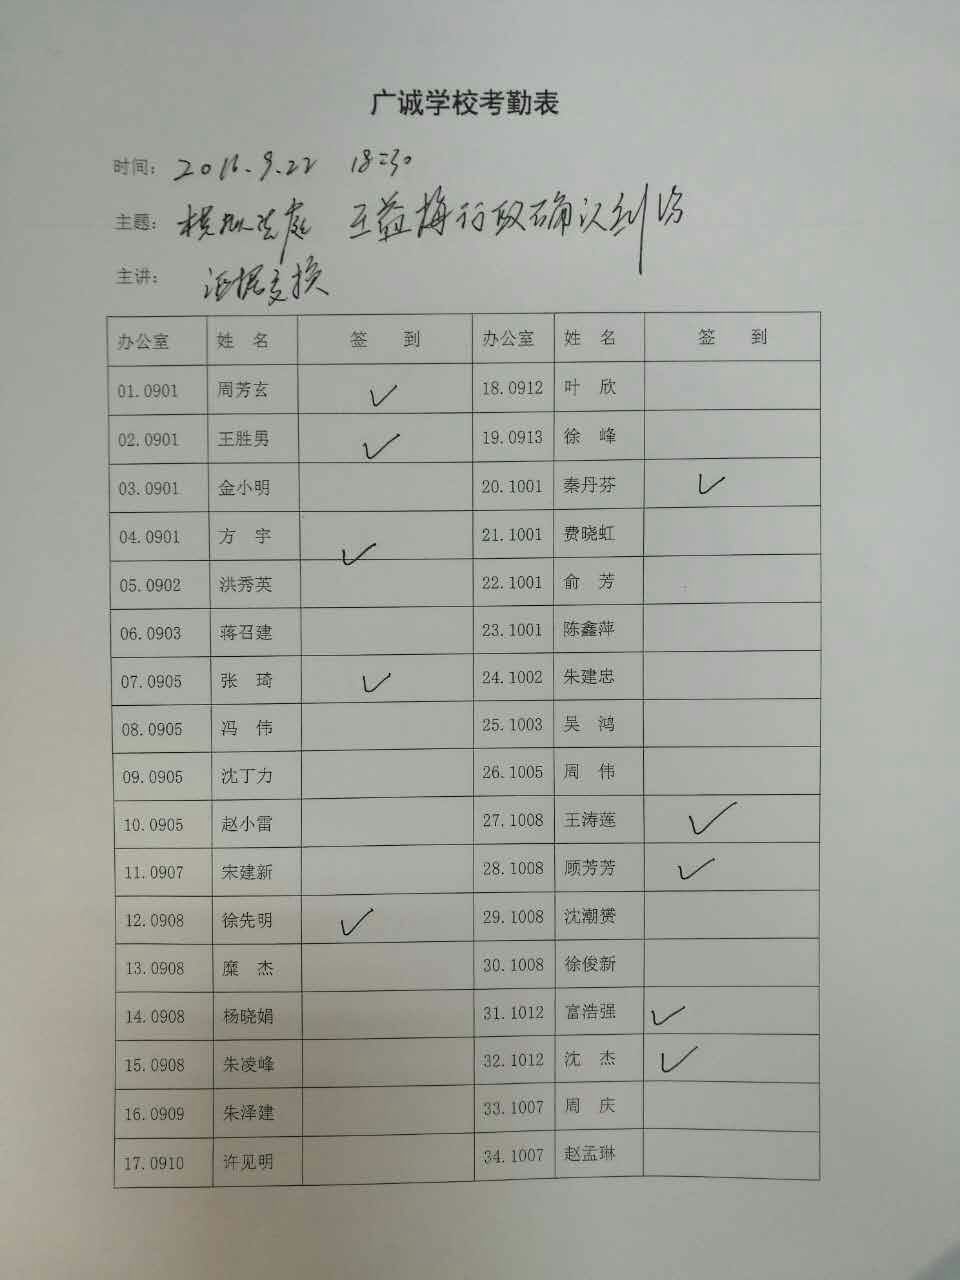 广诚学校考勤表
时间: 2016.9.22 18:30
主题: 模拟法庭 王益梅行政确认纠纷
主讲: 证据交换
办公室 姓 名 签 到 办公室 姓 名 签 到
01.0901 周芳玄 ✓ 18.0912 叶 欣
02.0901 王胜男 ✓ 19.0913 徐 峰
03.0901 金小明 20.1001 秦丹芬 ✓
04.0901 方 宇 ✓ 21.1001 费晓虹
05.0902 洪秀英 22.1001 俞 芳
06.0903 蒋召建 23.1001 陈鑫萍
07.0905 张 琦 ✓ 24.1002 朱建忠
08.0905 冯 伟 25.1003 吴 鸿
09.0905 沈丁力 26.1005 周 伟
10.0905 赵小雷 27.1008 王涛莲 ✓
11.0907 宋建新 28.1008 顾芳芳 ✓
12.0908 徐先明 ✓ 29.1008 沈潮赟
13.0908 糜 杰 30.1008 徐俊新
14.0908 杨晓娟 31.1012 富浩强 ✓
15.0908 朱凌峰 32.1012 沈 杰 ✓
16.0909 朱泽建 33.1007 周 庆
17.0910 许见明 34.1007 赵孟琳